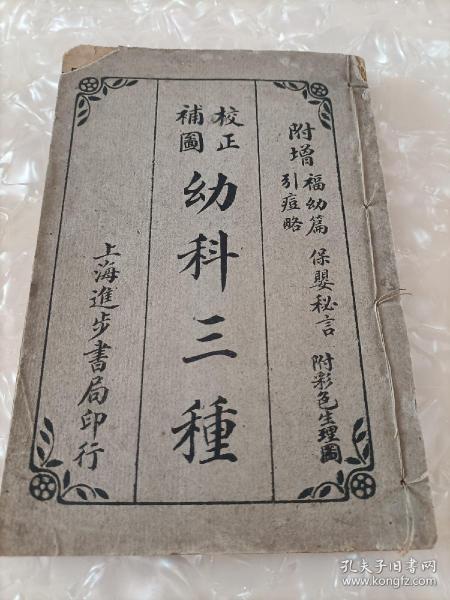 附增福幼篇 保嬰秘言 附彩色生理圖
引痘略
校正
補圖
幼科三種
上海進步書局印行
孔夫子旧书网
www.kongfz.com